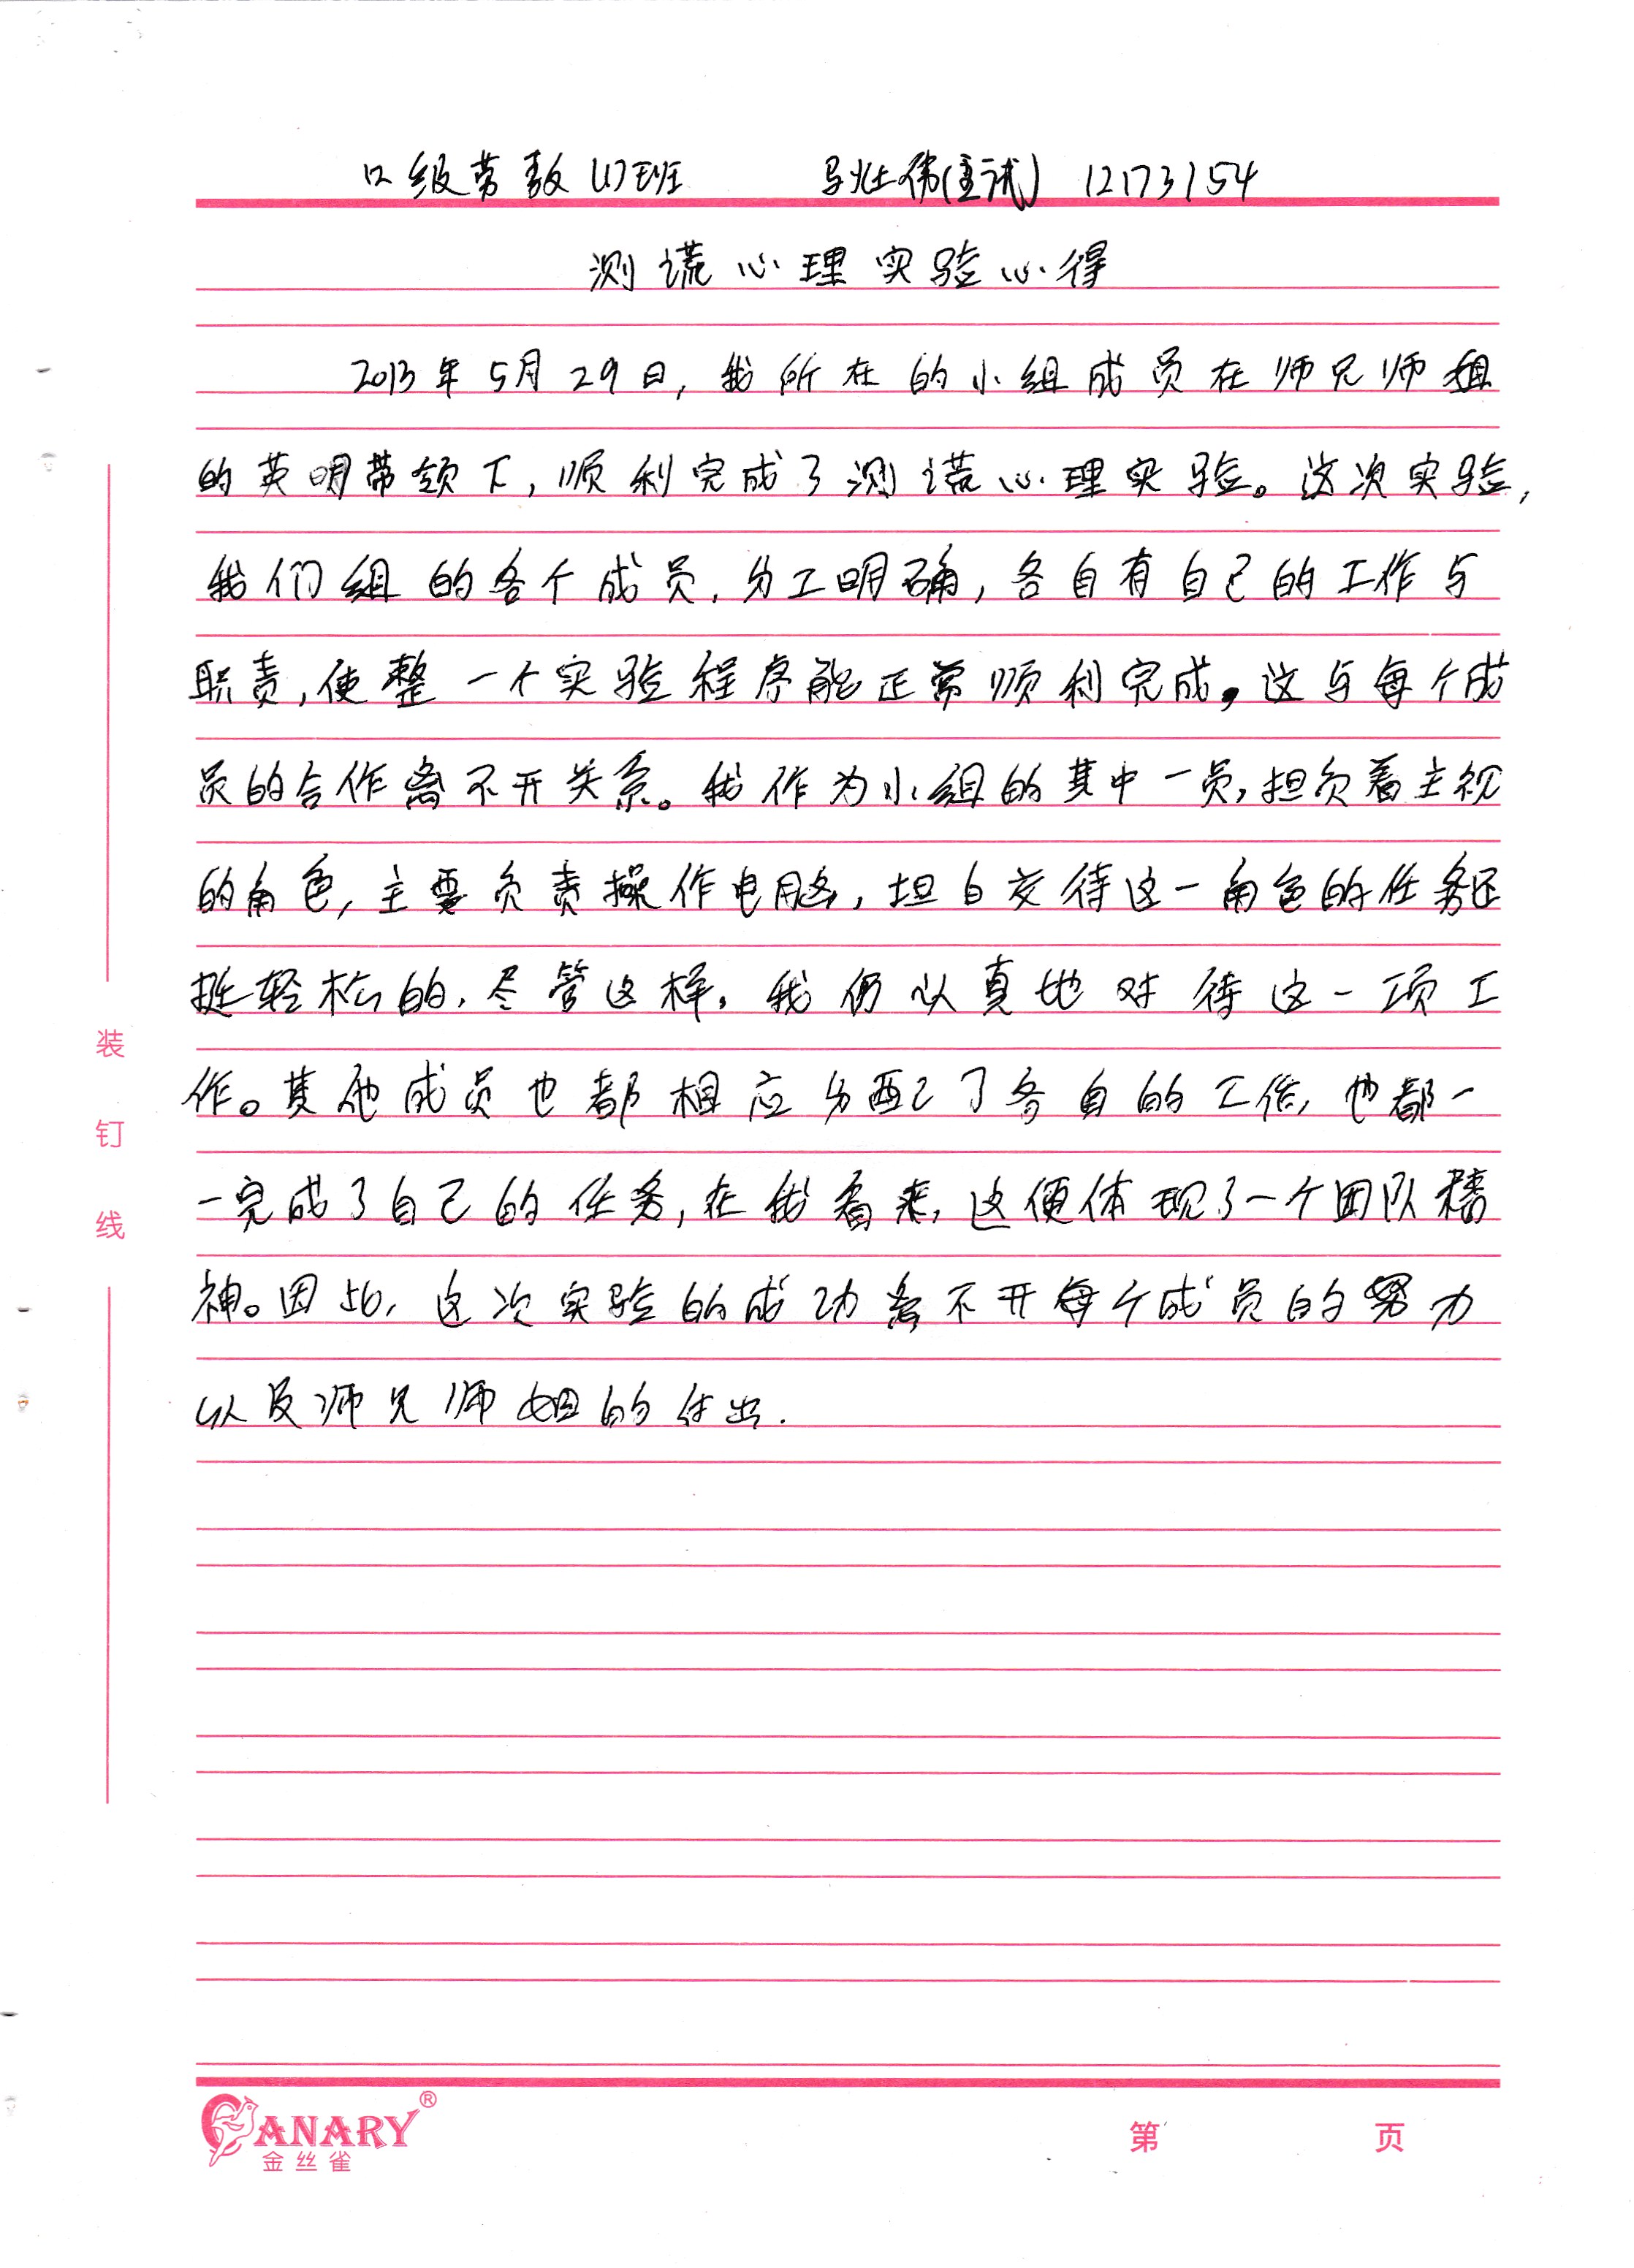 12级劳教(1)班 马壮伟(主试) 12173154
测谎心理实验心得
2013年5月29日,我所在的小组成员在师兄师姐
的英明带领下,顺利完成了测谎心理实验。这次实验,
我们组的各个成员,分工明确,各自有自己的工作与
职责,使整一个实验程序能正常顺利完成。这与每个成
员的合作离不开关系。我作为小组的其中一员,担负着主视
的角色,主要负责操作电脑,坦白交待这一角色的任务还
挺轻松的,尽管这样,我仍认真地对待这一项工
作。其他成员也都相应分配了各自的工作,也都一
一完成了自己的任务,在我看来,这便体现了一个团队精
神。因此,这次实验的成功离不开每个成员的努力
以及师兄师姐的付出.
装
钉
线
CANARY®
金丝雀
第 页